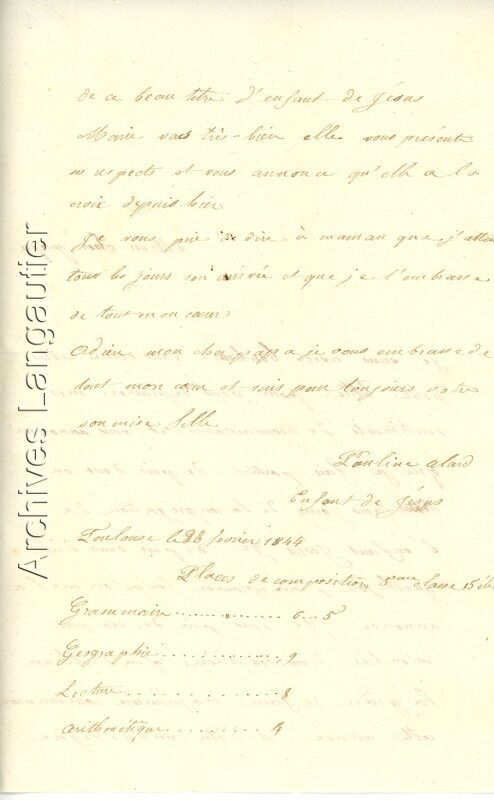 de ce beau titre d'enfant de Jésus
Marie vas très-bien elle vous présente
ses respects et vous annonce qu'elle a la
croix depuis hier
Je vous prie de dire à maman que j'atten
tous les jours son arrivée et que je l'embrasse
de tout mon cœur
Adieu mon cher papa je vous embrasse de
tout mon cœur et suis pour toujours votre
soumise fille
Pauline alard
Enfant de Jésus
Toulouse le février 1844
Places de composition 5eme classe 15 élè
Grammaire 6 5
Géographie 9
Lecture 8
Arithmétique 4
Archives Langautier